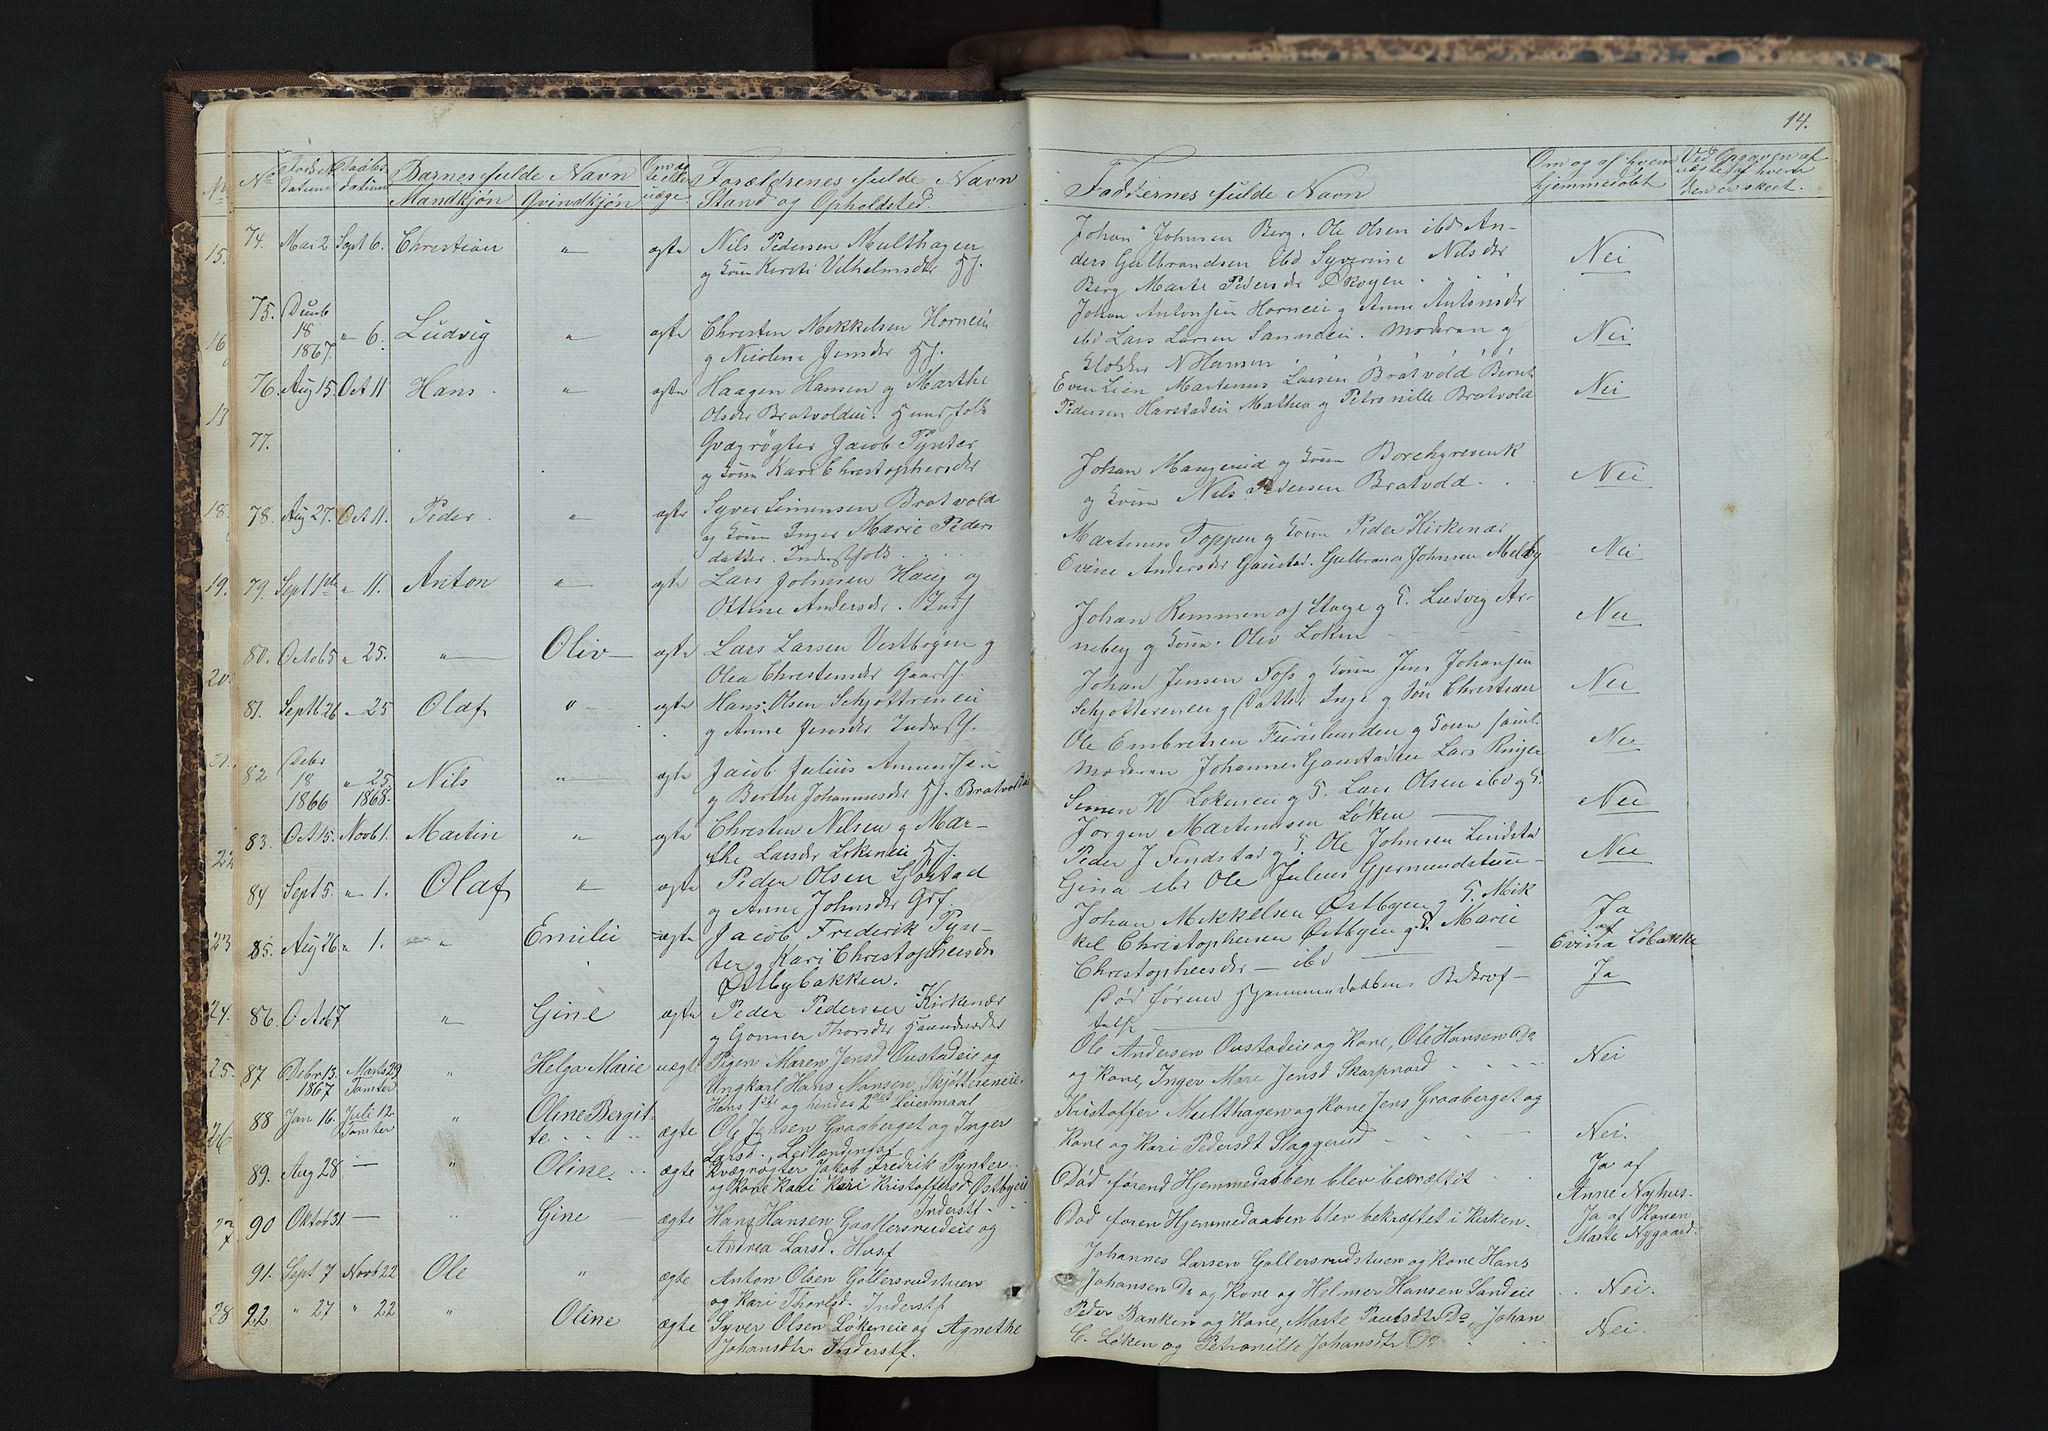 14.
No
No
Fødsels datum
Daabs datum
Barnes fulde Navn
Mandkjøn
Qvindkjøn
Forældrenes fulde Navn
Stand og Opholdsted.
Faddernes fulde Navn
Om og af hvem
hjemmedøbt
Ved Opgaven af
den er skeet.
15.
74. Mai 2 Sept 6. Christian " ægte Nils Pedersen Multhagen
og Kone Kersti Vilhelmsdtr Hf.
Johan Johnsen Berg. Ole Olsen ibd An-
ders Gulbrandsen ibd Syverine Nilsdtr
Berg Marte Pedersdtr
Nei
16
75. Decmb
18
1867. " 6. Ludvig " ægte Christen Mekkelsen Hornei
og Nicoline Jensdtr Hf.
Johan Antonsen Hornei og Anne Antonsdtr
ibd Lars Larsen Sanneei. Moderen og
Klokker N Hansen
Nei
76 Aug 15. Oct 11 Hans. " ægte Haagen Hansen og Marthe
Olsdr Bratvoldei. Huusfolk
Even Lien Martenus Larsen Bratvold Bernt
Pedersen Harstadeie Mathea og Petronille Bratvold
Nei
77.
Qvægrøgter Jacob Pynter
og Kone Kari Christophersdtr
Johan Mangerud og Kone
og Kone Nils Pedersen Bratvold.
Nei
18.
78. Aug 27. Oct 11. Peder. " ægte Syver Simensen Bratvold
og Kone Inger Marie Peders
datter. Inderstfolk.
Martenus Toppen og Kone Peder Kirkenær
Evine Andersdtr Gaustad. Gulbrand Johnsen Melby
Nei
19.
79. Sept 1st " 11. Anton " ægte Lars Johnsen Haug og
Ottine Andersdtr. Indf
Johan Remmen og Kone Ludvig Ar-
neberg og Kone. Oliv Løken
Nei
20.
80. Octob 5 " 25. " Oliv ægte Lars Larsen Vestbyen og
Olea Christensdtr Gaardf.
Johan Jensen Foss og Kone Jens Johansen
Nei
81. Septb 26 " 25 Olaf " ægte Hans Olsen Schjottereneie
og Anne Jensdtr Inderstf.
Schjottereneie og Datter Inge og Søn Christian
Ole Embretsen og Kone samt
Nei
21.
82 Debr
18
1866 " 25.
1868. Nils " ægte Jacob Julius Amundsen
og Berthe Johannesdtr Hf. Bratvoldeie
Moderen Johannes Gaustadeie Lars Ringer
Simen W Løkeneie og K. Lars Olsen ibd og K.
Nei
83. Oct 15. Novb 1. Martin " ægte Christen Nilsen og Mar-
the Larsdtr Løkeneie Hf.
Jørgen Martinussen Løken
Peder J Fendstad og K. Ole Johnsen Lindstad
Nei
22
84 Sept 5. " 1. Olaf " ægte Peder Olsen Sjøstad
og Anne Johnsdtr Grf.
Gina ibd Ole Julius Gjermundstuen
Johan Mekkelsen Østbyen og K. Mik
Ja
23
85. Aug 26 " 1. " Emilie ægte Jacob Frederik Pyn-
ter og Kari Christophersdtr
Østbybakken.
kel Christophersen Østbyen og K. Marie
Christophersdtr — ibd —
af
Evina Løbakke
Ja
24.
86. Octob 7 " Gine ægte Peder Pedersen Kirkenær
og Gonner Thorsdtr
Død føren Hjemmedaabens Bekræf-
telse
25.
87 Debr 13.
1867 Marts 29
Tomter " Helga Marie uægte Pigen Maren Jensd Oustadeie og
Ungkarl Hans Hansen, Skjøttereneie
Hans 1ste og hendes 2det Leiermaal
Ole Andersen Oustadeie og Kone, Ole Hansen Do
og Kone, Inger Mari Jensd Skarpnord
Nei
26
88 Jan 16. Juli 12
Tomter " Oline Bergit
te ægte Ole Jensen Graaberget og Inger
Larsd, Leilændingsf.
Kristoffer Multhagen og Kone Jens Graaberget og
Kone og Kari Pedersdt Slaggerud
Nei.
89. Aug 28 — " Oline. ægte Kvægrøgter Jakob Fredrik Pynter
og Kone Kari Kari Kristoffersd Østbyeie
Inderstf
Død førend Hjemmedaaben blev bekræftet
Ja af
Anne Nyhus.
27
90 Oktob 31 — " Gine — ægte Hans Hansen Gollersrudeie og
Andrea Larsd. Husf
Død føren Hjemmedaaben blev bekræftet i Kirken.
Ja af Konen
Marte Nygaard.
91. Sept 7 Novb 22 Ole " ægte Anton Olsen Gollersrudstuen
og Kari Thoresd. Inderstf
Johannes Larsen Gollersrudstuen og Kone Hans
Johansen Do og Kone og Helmer Hansen Sandeie
Nei.
28
92 " 27 " 22 " Oline ægte Syver Olsen Løkeneie og Agnethe
Johansdtr Inderstf.
Peder Banken og Kone, Marte Paulsdt Do, Johan
C. Løken og Petronille Johansdtr Do
Nei.